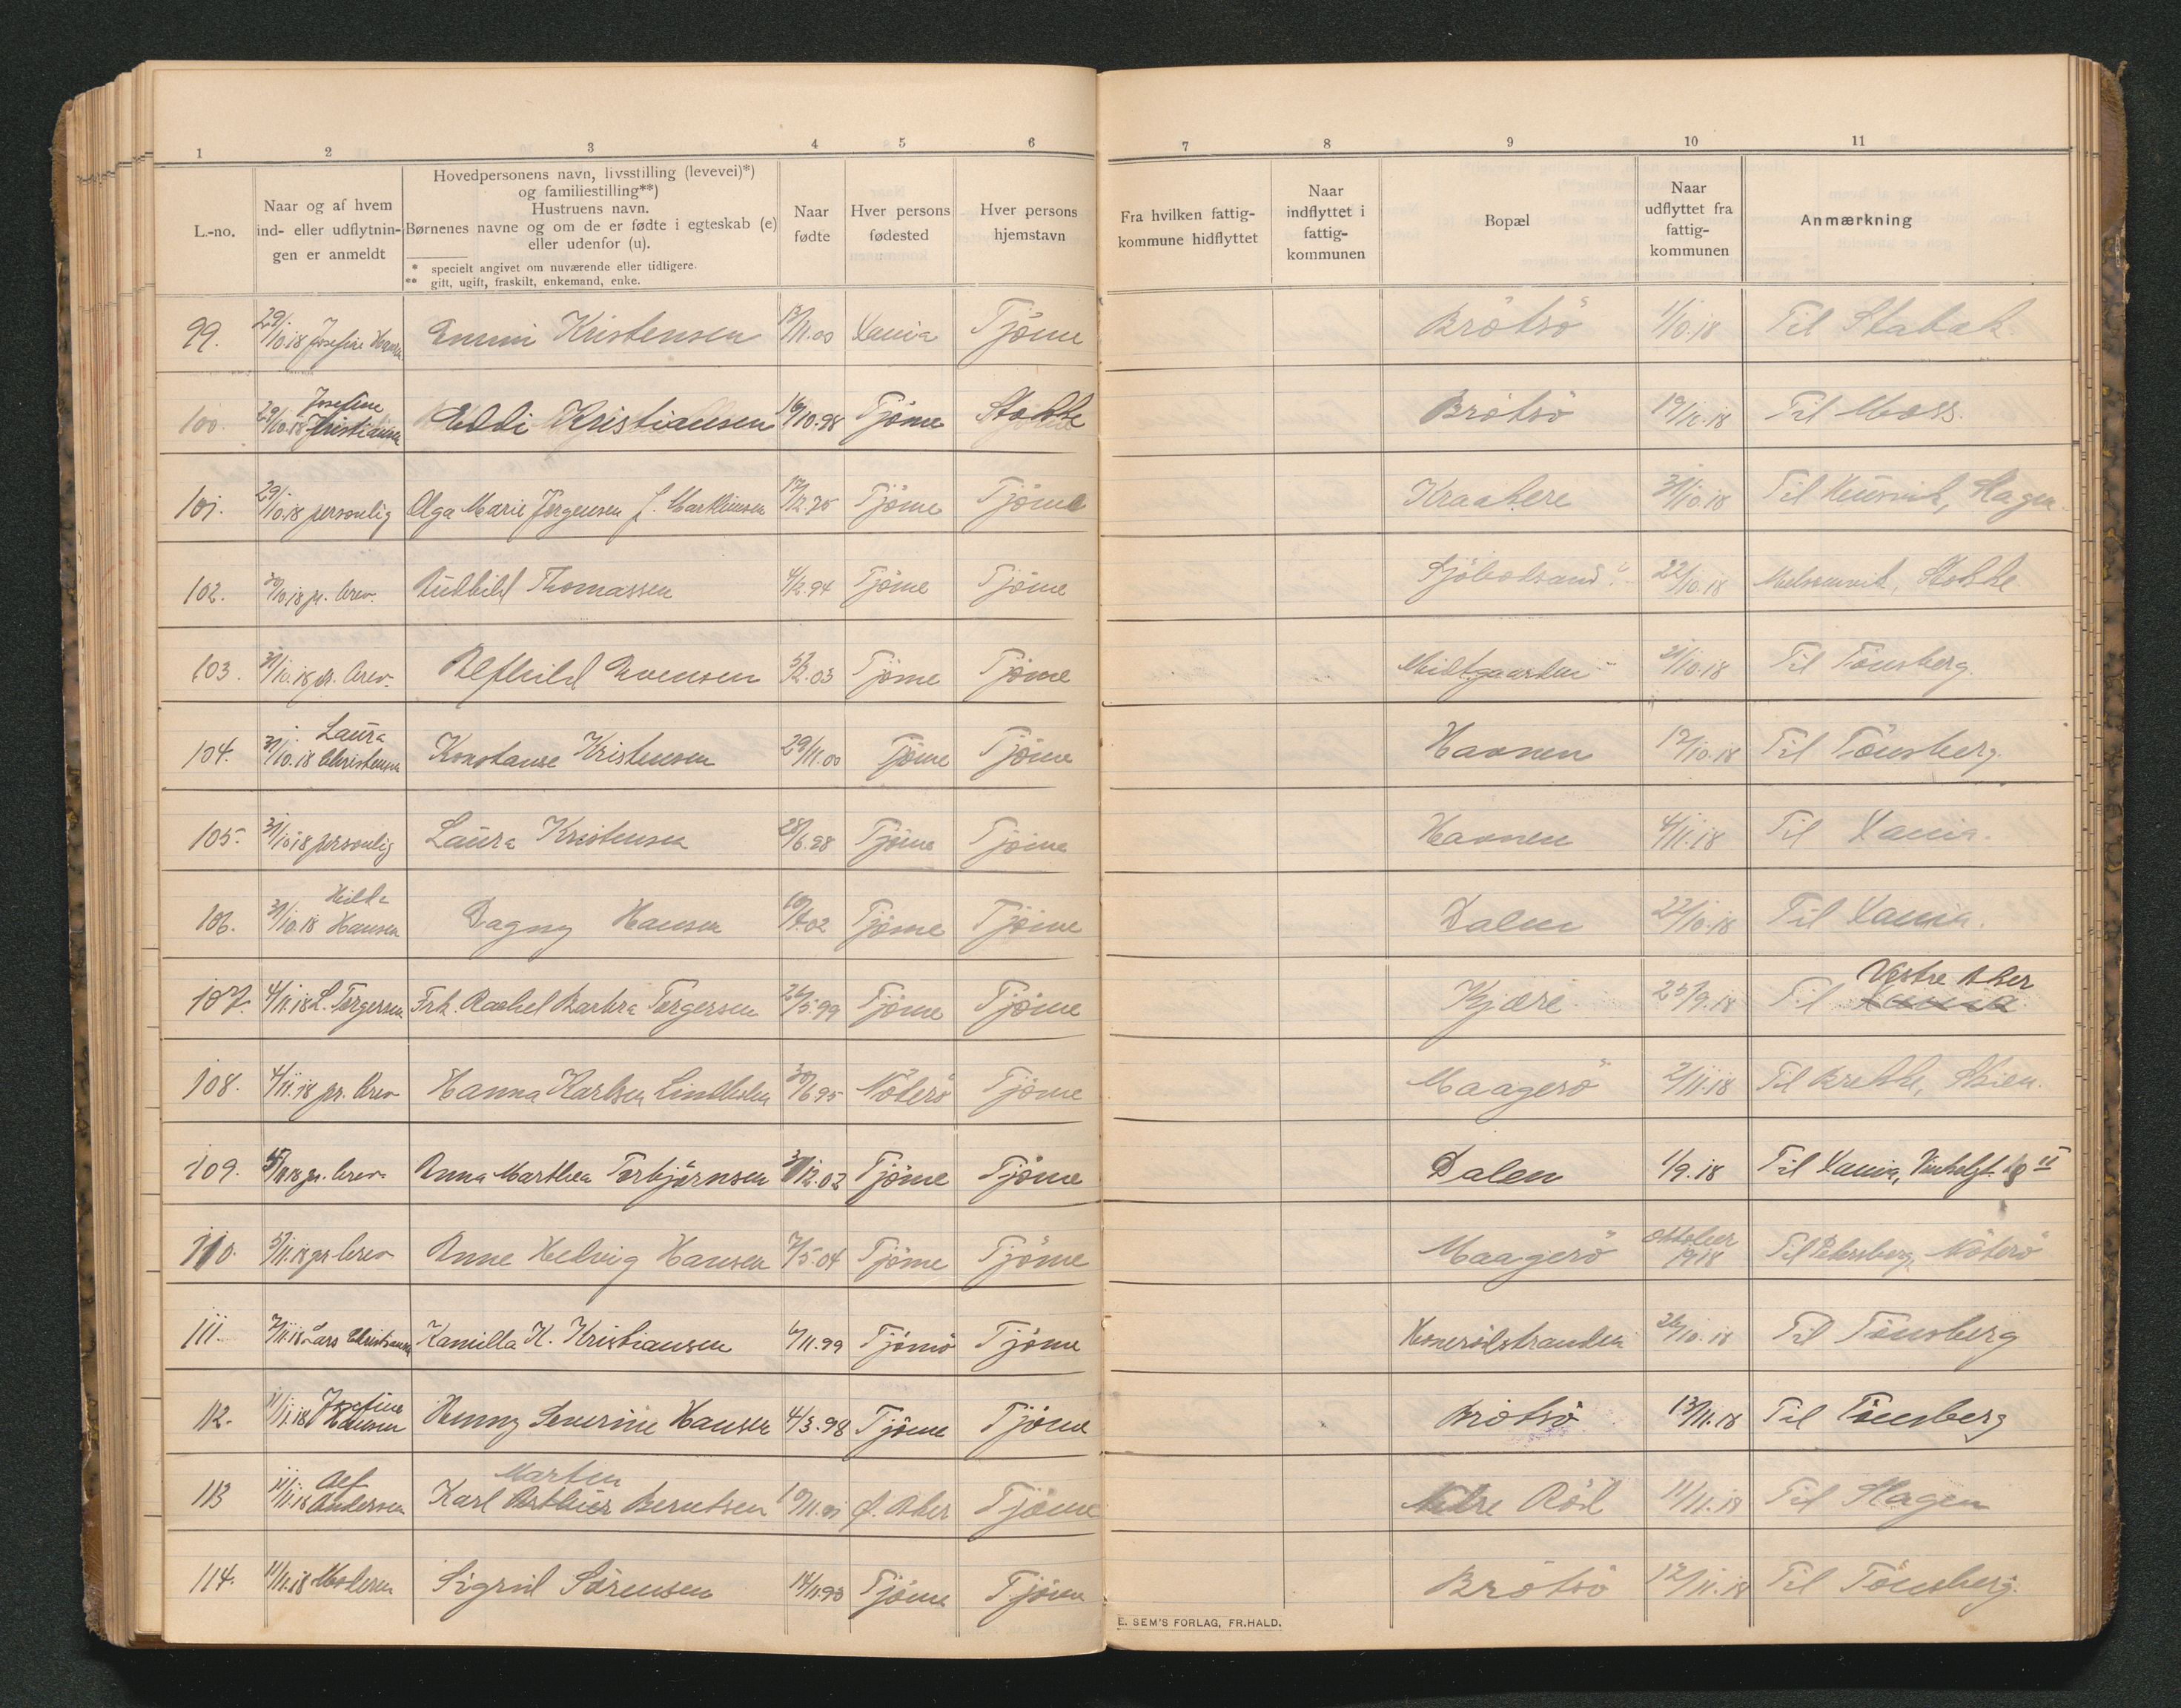 1 2 3 4 5 6 7 8 9 10 11
L.-no.
Naar og af hvem
ind- eller udflytnin-
gen er anmeldt
Hovedpersonens navn, livsstilling (levevei)*)
og familiestilling**)
Hustruens navn.
Børnenes navne og om de er fødte i egteskab (e)
eller udenfor (u).
* specielt angivet om nuværende eller tidligere.
** gift, ugift, fraskilt, enkemand, enke.
Naar
fødte
Hver persons
fødested
Hver persons
hjemstavn
Fra hvilken fattig-
kommune hidflyttet
Naar
indflyttet i
fattig-
kommunen
Bopæl
Naar
udflyttet fra
fattig-
kommunen
Anmærkning
99. 29/10.18 Josefine Hansen Emmi Kristensen 13/11.00 Xania Tjöme Brötsö 1/10.18 Til Stabak.
100. 29/10.18 Josefine Kristiansen Eddi Kristiansen 16/10.98 Tjöme Stokke Brötsö 19/10.18 Til Moss.
101. 29/10.18 personlig Olga Marie Jörgensen f. Marthinsen 17/12.75 Tjöme Tjöme Kraakere 31/10.18 Til Slagen.
102. 30/10.18 pr. brev. Rudhild Thomassen 4/12.94 Tjöme Tjöme 22/10.18 Melsomvik, Stokke
103. 31/10.18 pr. brev. Alfhild Evensen 5/2.03 Tjöme Tjöme Midtgaarden 21/10.18 Til Tönsberg.
104. 31/10.18 Laura Christensen Konstanse Kristensen 29/11.00 Tjöme Tjöme Havnen 12/10.18 Til Tönsberg.
105. 31/10.18 personlig Laura Kristensen 28/6.98 Tjöme Tjöme Havnen 4/11.18 Til Xania.
106. 31/10.18 Hilda Hansen Dagny Hansen Tjöme Tjöme Dalen 22/10.18 Til Xania.
107. 4/11.18 L. Torgersen Frk. Rachel Barbra Torgersen 26/5.99 Tjöme Tjöme Kjære 25/9.18 Til Xania Vestre Aker
108. 4/11.18 pr. brev Hanna Karlsen Lindholm 30/6.95 Nöterö Tjöme Maagerö 2/11.18 Til Brekke, Skien.
109. 5/11.18 pr. brev. Anna Marthea Torbjörnsen 31/12.02 Tjöme Tjöme Dalen 1/9.18 Til Xania,
110. 5/11.18 pr brev Anne Hedvig Hansen 7/5.04 Tjöme Tjöme Maagerö oktober 1918 Til Petersberg, Nöterö
111. 7/11.18 Lars Christiansen Kamilla K. Kristiansen 6/11.99 Tjömö Tjöme Honerödstranden 26/10.18 Til Tönsberg
112. 11/11.18 Josefine Hansen Henny Severine Hansen 4/3.98 Tjöme Tjöme Brötsö 13/11.18 Til Tönsberg
113 11/11.18 Alf Andersen Karl Arthur Martin Berntsen Ø. Aker Tjöme Nedre Röd 11/11.18 Til Slagen
114. 11/11.18 Moderen Sigrid Sörensen 14/11.93 Tjöme Tjöme Brötsö 12/11.18 Til Tönsberg.
E. SEM'S FORLAG, FR.HALD.